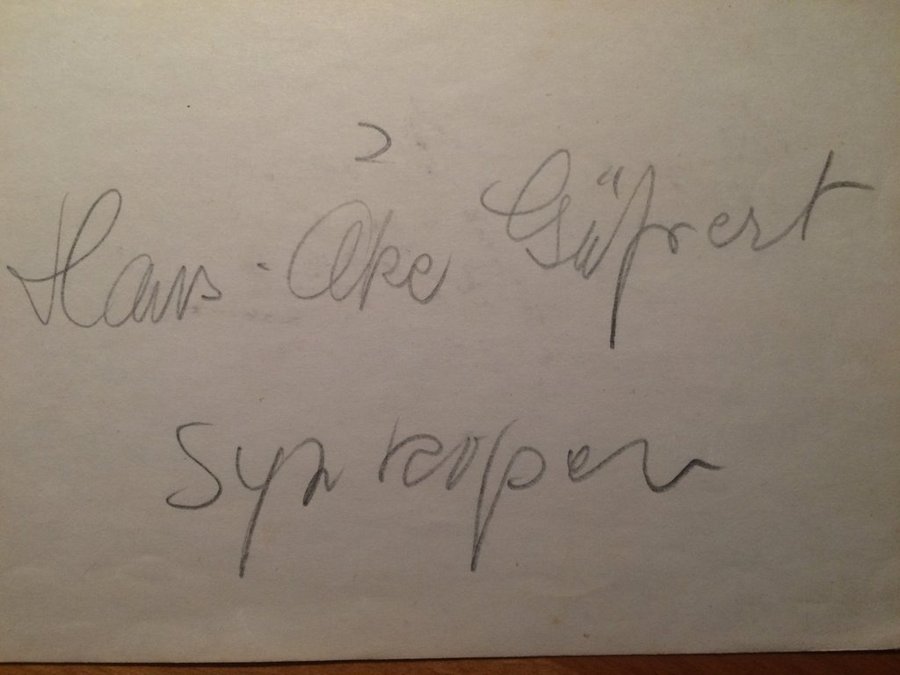 Hans-Åke Gäfvert
Synkopen